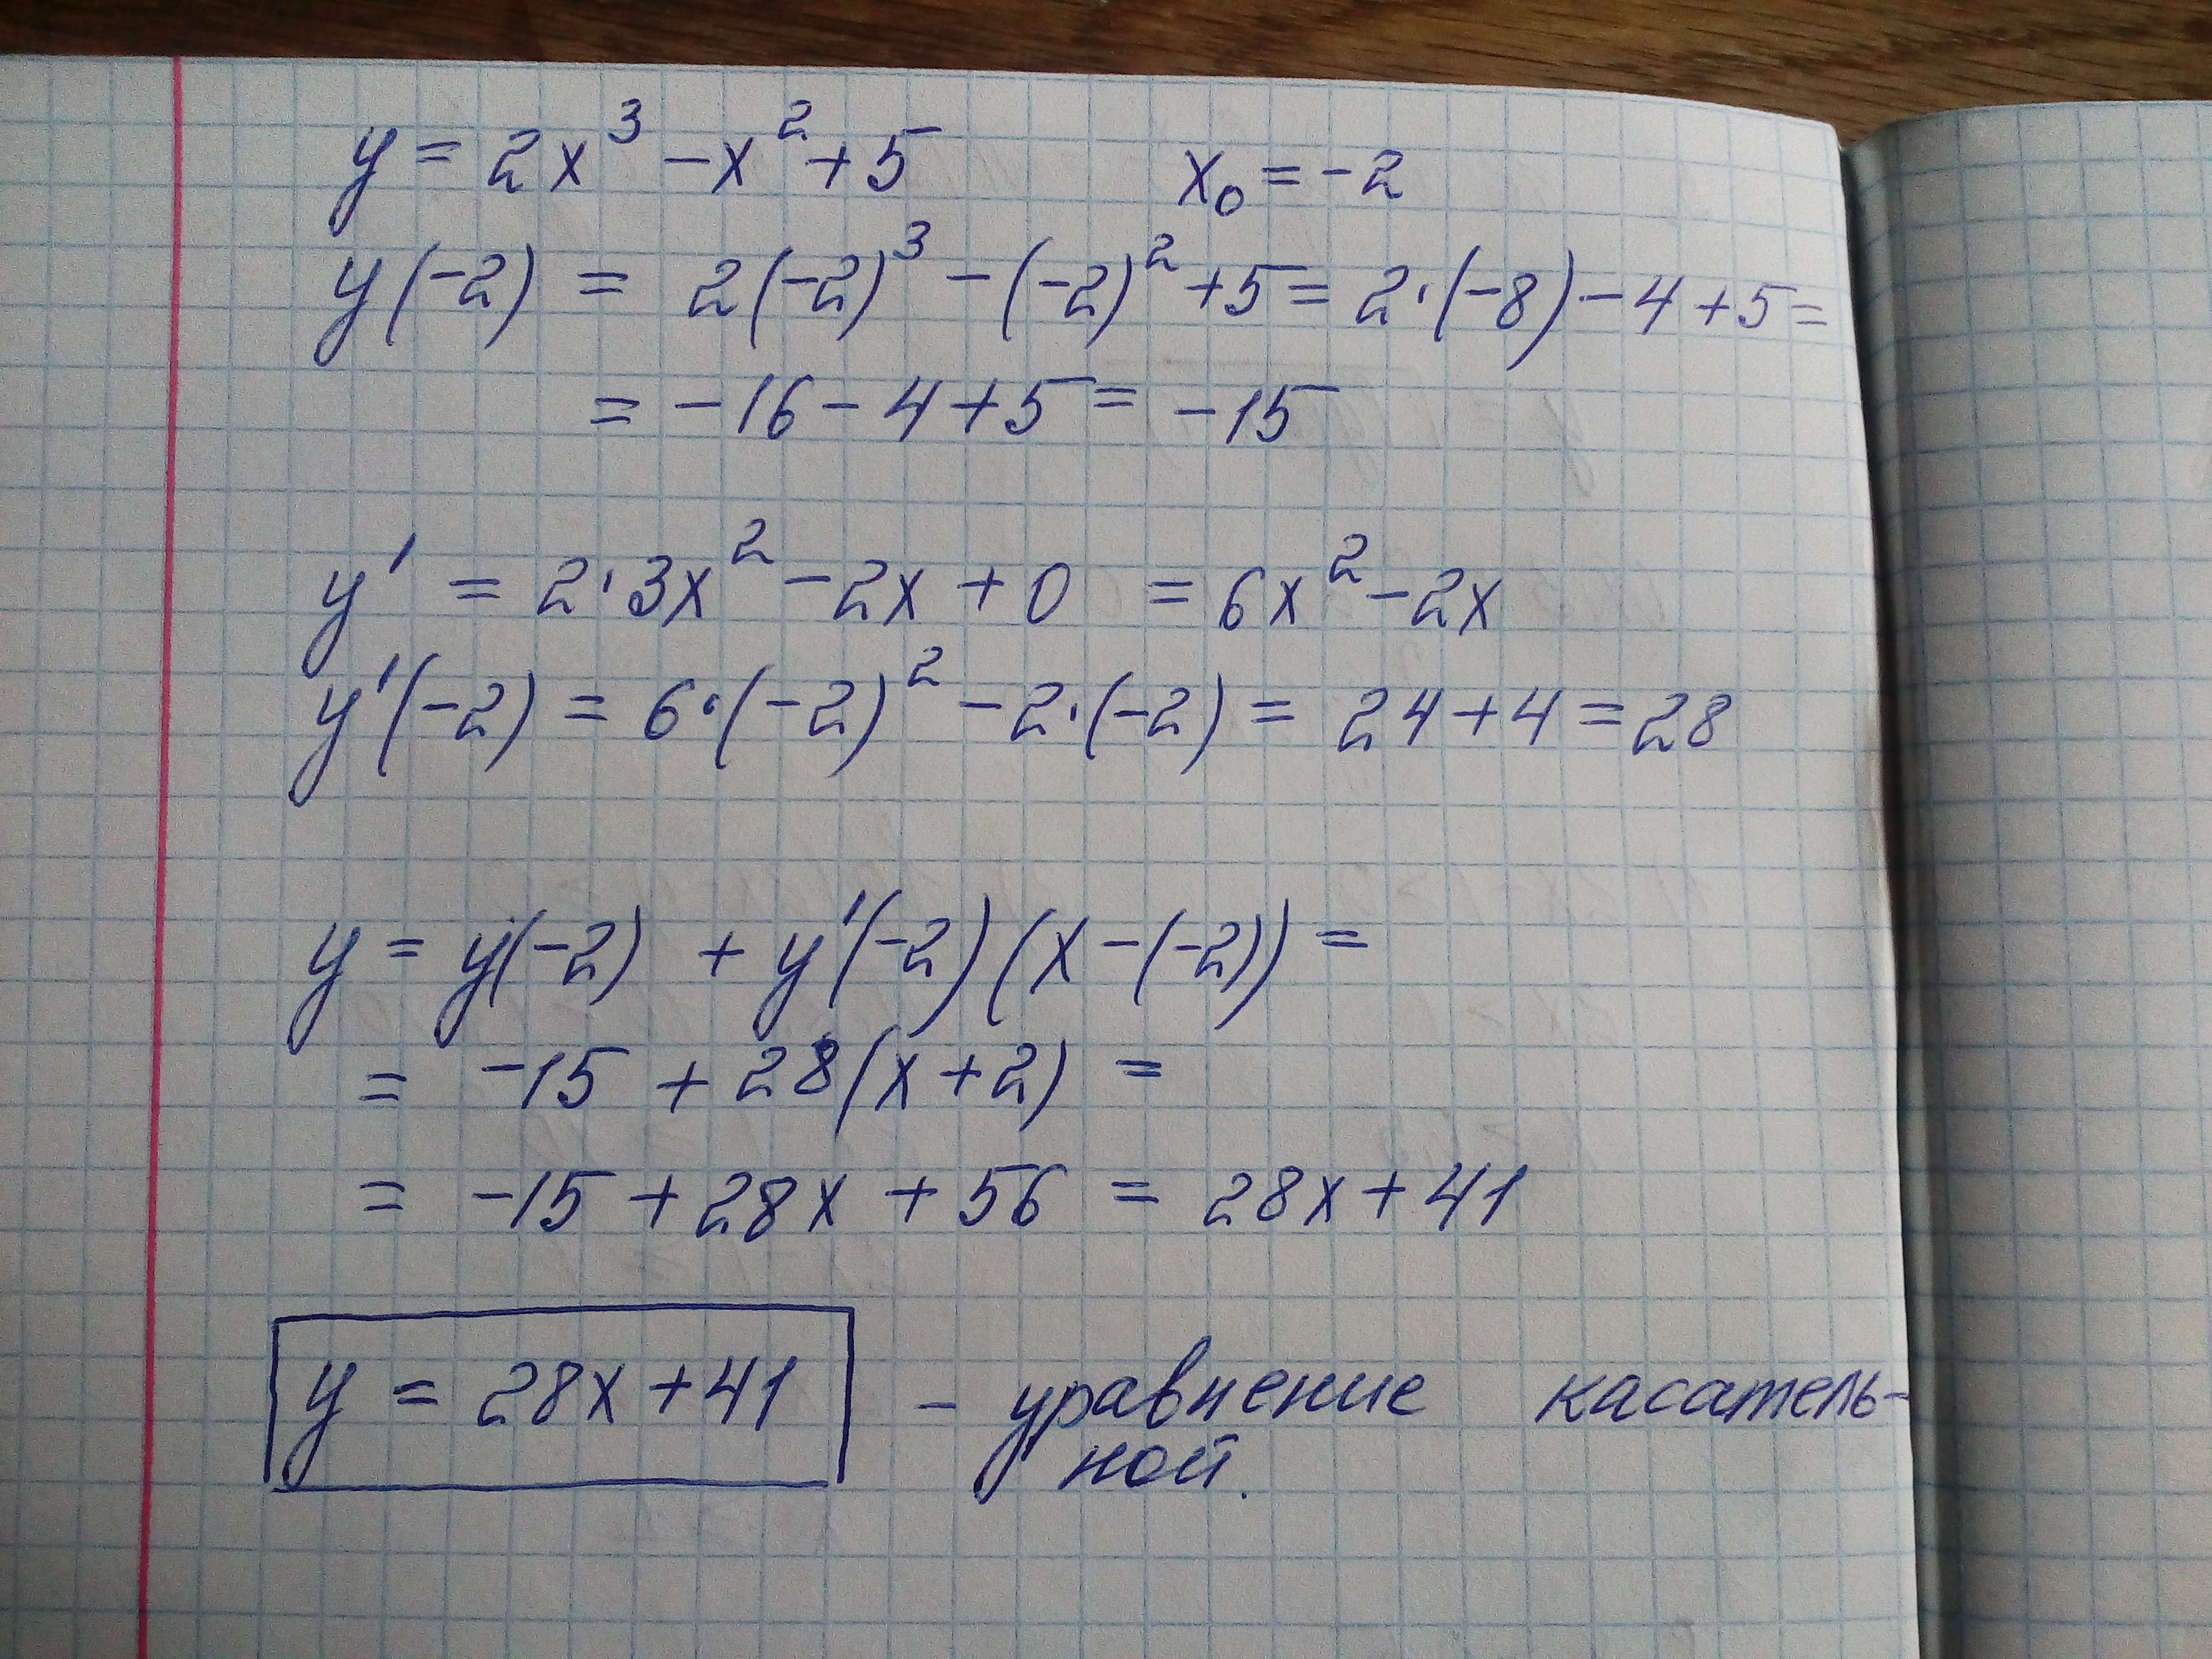 y = 2x³ - x² + 5 x₀ = -2
y(-2) = 2(-2)³ - (-2)² + 5 = 2·(-8) - 4 + 5 =
= -16 - 4 + 5 = -15
y' = 2·3x² - 2x + 0 = 6x² - 2x
y'(-2) = 6·(-2)² - 2·(-2) = 24 + 4 = 28
y = y(-2) + y'(-2)(x - (-2)) =
= -15 + 28(x + 2) =
= -15 + 28x + 56 = 28x + 41
y = 28x + 41 - уравнение касатель-
ной.